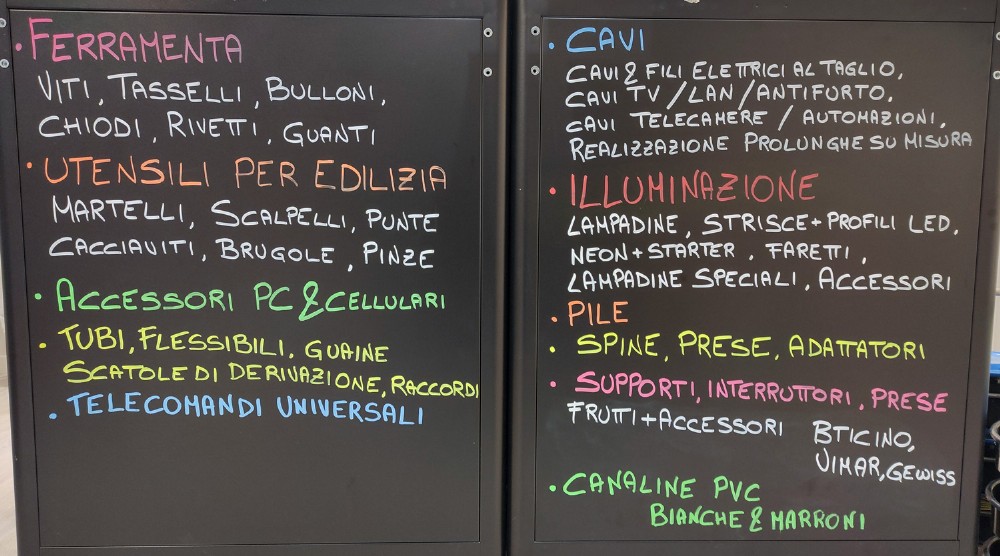 • FERRAMENTA
VITI, TASSELLI, BULLONI,
CHIODI, RIVETTI, GUANTI
• UTENSILI PER EDILIZIA
MARTELLI, SCALPELLI, PUNTE
CACCIAVITI, BRUGOLE, PINZE
• ACCESSORI PC & CELLULARI
• TUBI, FLESSIBILI, GUAINE
SCATOLE DI DERIVAZIONE, RACCORDI
• TELECOMANDI UNIVERSALI
• CAVI
CAVI & FILI ELETTRICI AL TAGLIO,
CAVI TV / LAN / ANTIFURTO.
CAVI TELECAMERE / AUTOMAZIONI,
REALIZZAZIONE PROLUNGHE SU MISURA
• ILLUMINAZIONE
LAMPADINE, STRISCE + PROFILI LED,
NEON + STARTER, FARETTI,
LAMPADINE SPECIALI, ACCESSORI
• PILE
• SPINE, PRESE, ADATTATORI
• SUPPORTI, INTERRUTTORI, PRESE
FRUTTI + ACCESSORI BTICINO,
VIMAR, GEWISS
• CANALINE PVC
BIANCHE & MARRONI